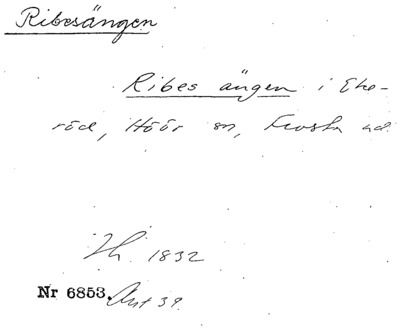 Ribesängen
Ribes ängen i Eke-
röd, Höör sn, Frosta hd.
Jh. 1832
Nr 6853. Ant 39